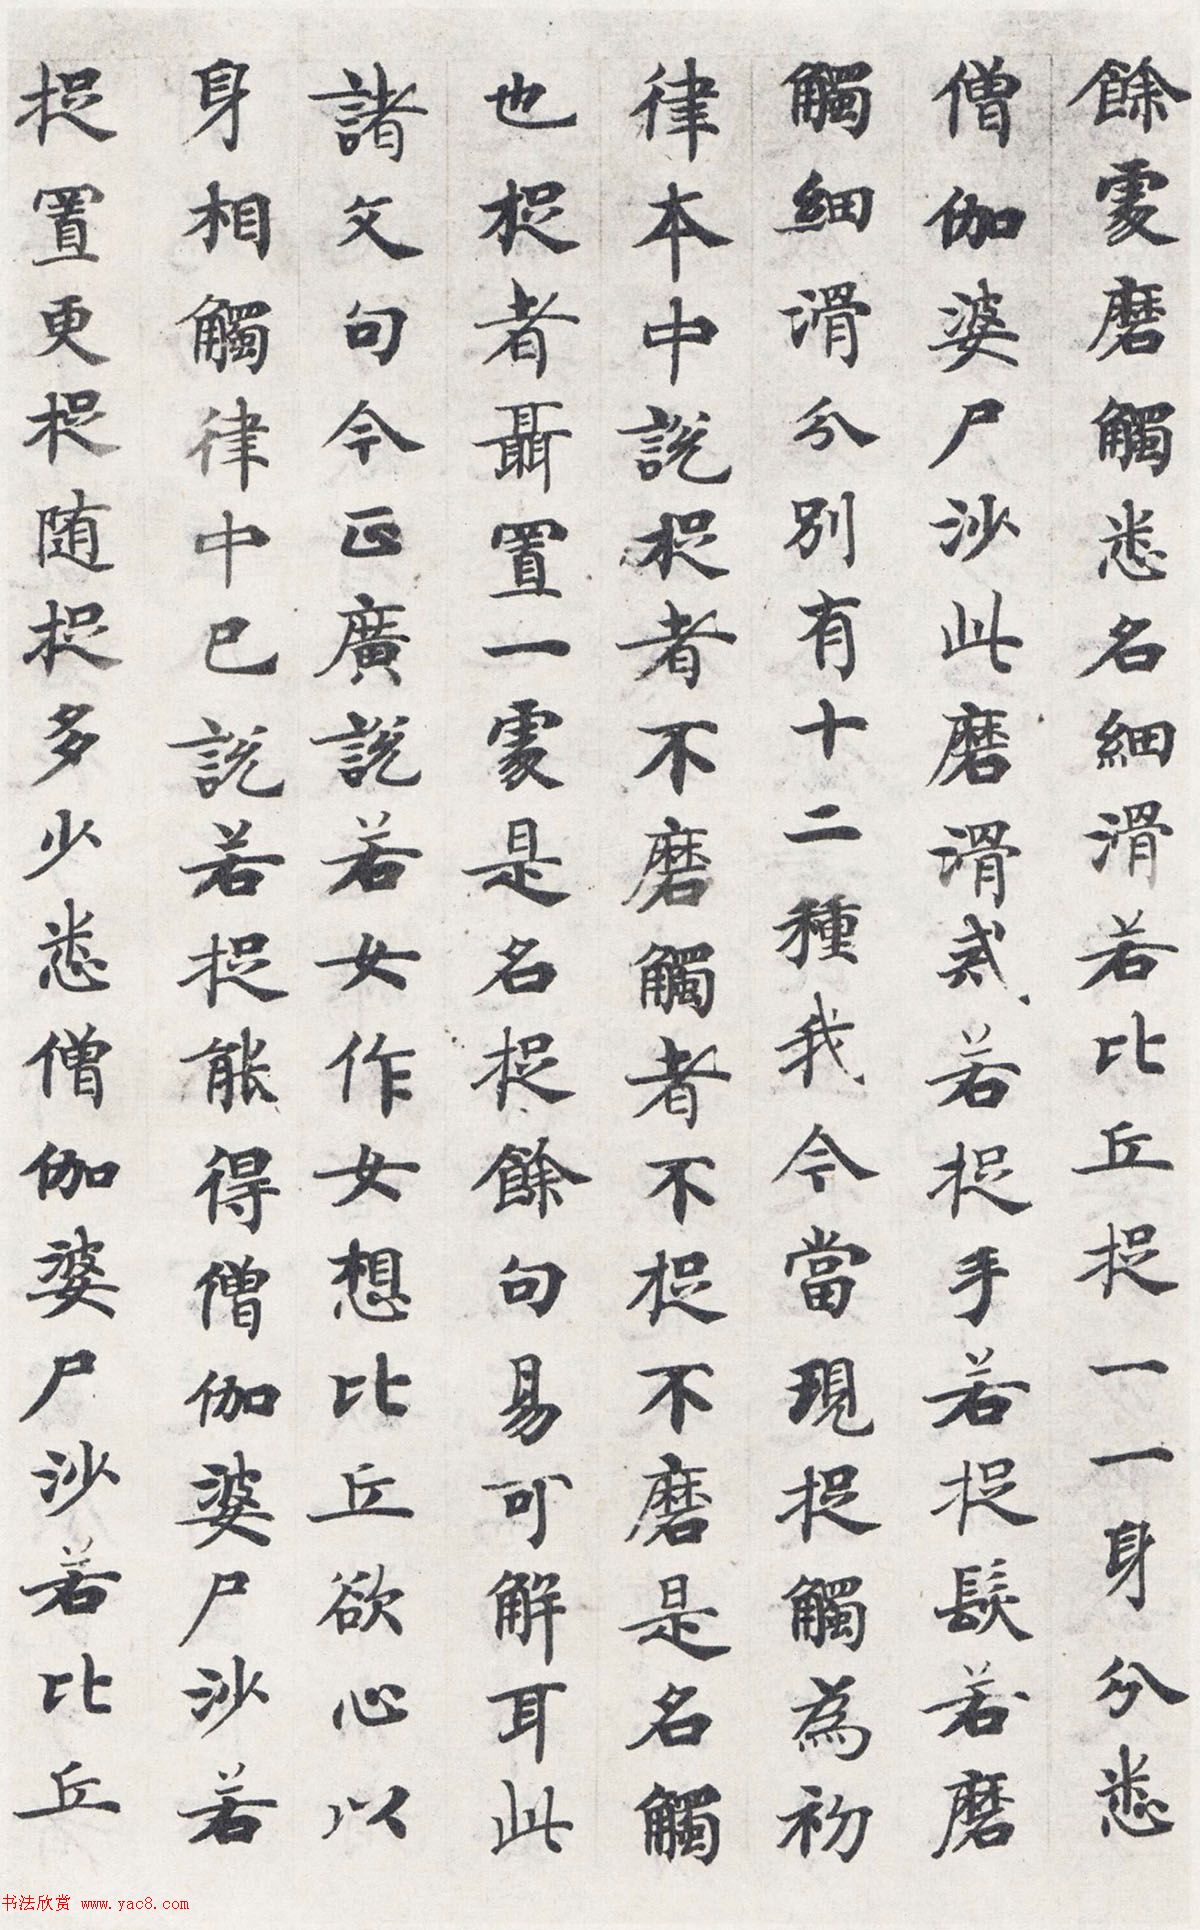 餘處磨觸悉名細滑若比丘捉一一身分悉
僧伽婆尸沙此磨滑貳若捉手若捉髮若磨
觸細滑分別有十二種我今當現捉觸為初
律本中說捉者不磨觸者不捉不磨是名觸
也捉者聶置一處是名捉餘句易可解耳此
諸文句今正廣說若女作女想比丘欲心以
身相觸律中已說若捉能得僧伽婆尸沙若
捉置更捉随捉多少悉僧伽婆尸沙若比丘
书法欣赏 www.yac8.com